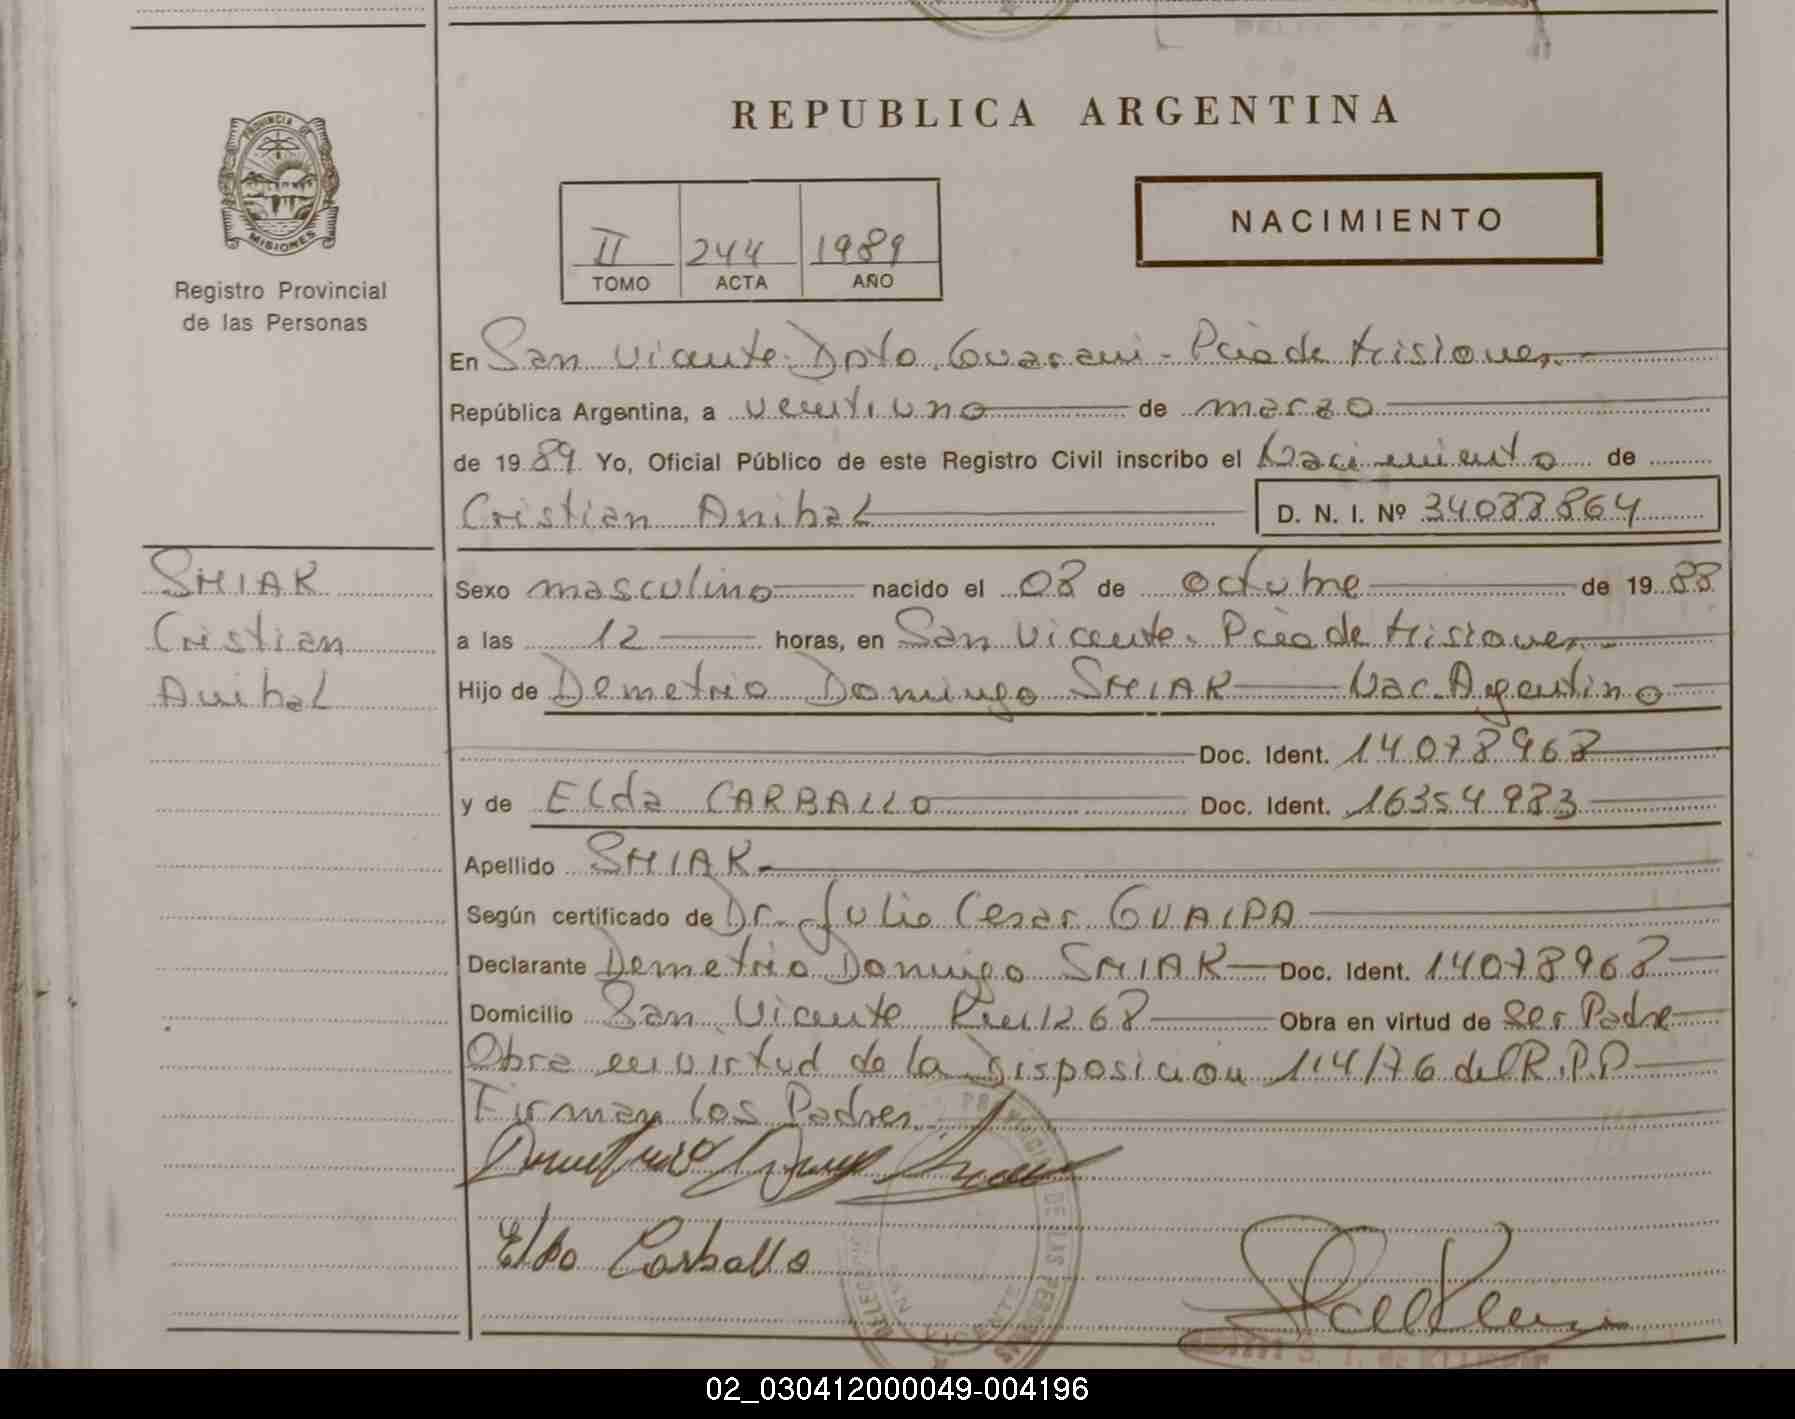 REPUBLICA ARGENTINA
PROVINCIA DE
MISIONES
Registro Provincial
de las Personas
II 244 1989
TOMO ACTA AÑO
NACIMIENTO
En San Vicente. Dpto. Guarani - Pcia de Misiones
República Argentina, a ventiuno de marzo
de 1989 Yo, Oficial Público de este Registro Civil inscribo el Nacimiento de
Cristian Anibal D. N. I. Nº 34088864
SMIAK
Cristian
Anibal
Sexo masculino nacido el 08 de octubre de 1988
a las 12 horas, en San Vicente. Pcia de Misiones
Hijo de Demetrio Domingo SMIAK Nac. Argentino
Doc. Ident. 14078968
y de Elda CARBALLO Doc. Ident. 16354983
Apellido SMIAK
Según certificado de Dr. Julio Cesar GUALPA
Declarante Demetrio Domingo SMIAK Doc. Ident. 14078968
Domicilio San Vicente 1268 Obra en virtud de Ser Padre
Obra en virtud de la Disposición 114/76 del R.P.P
Firman los Padres
Elda Carballo
02_030412000049-004196